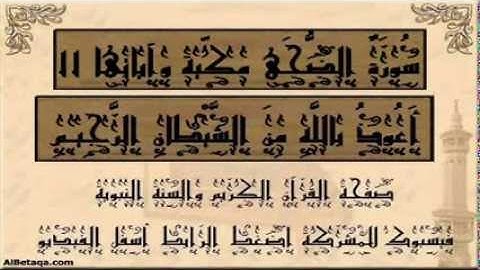 سُورَةُ الضُّحَى مَكِّيَّةٌ وَآيَاتُهَا 11
أَعُوذُ بِاللَّهِ مِنَ الشَّيْطَانِ الرَّجِيمِ
صفحة القرآن الكريم والسنة النبوية
فيسبوك للمشركة اضغط الرابط أسفل الفيديو
AlBetaqa.com